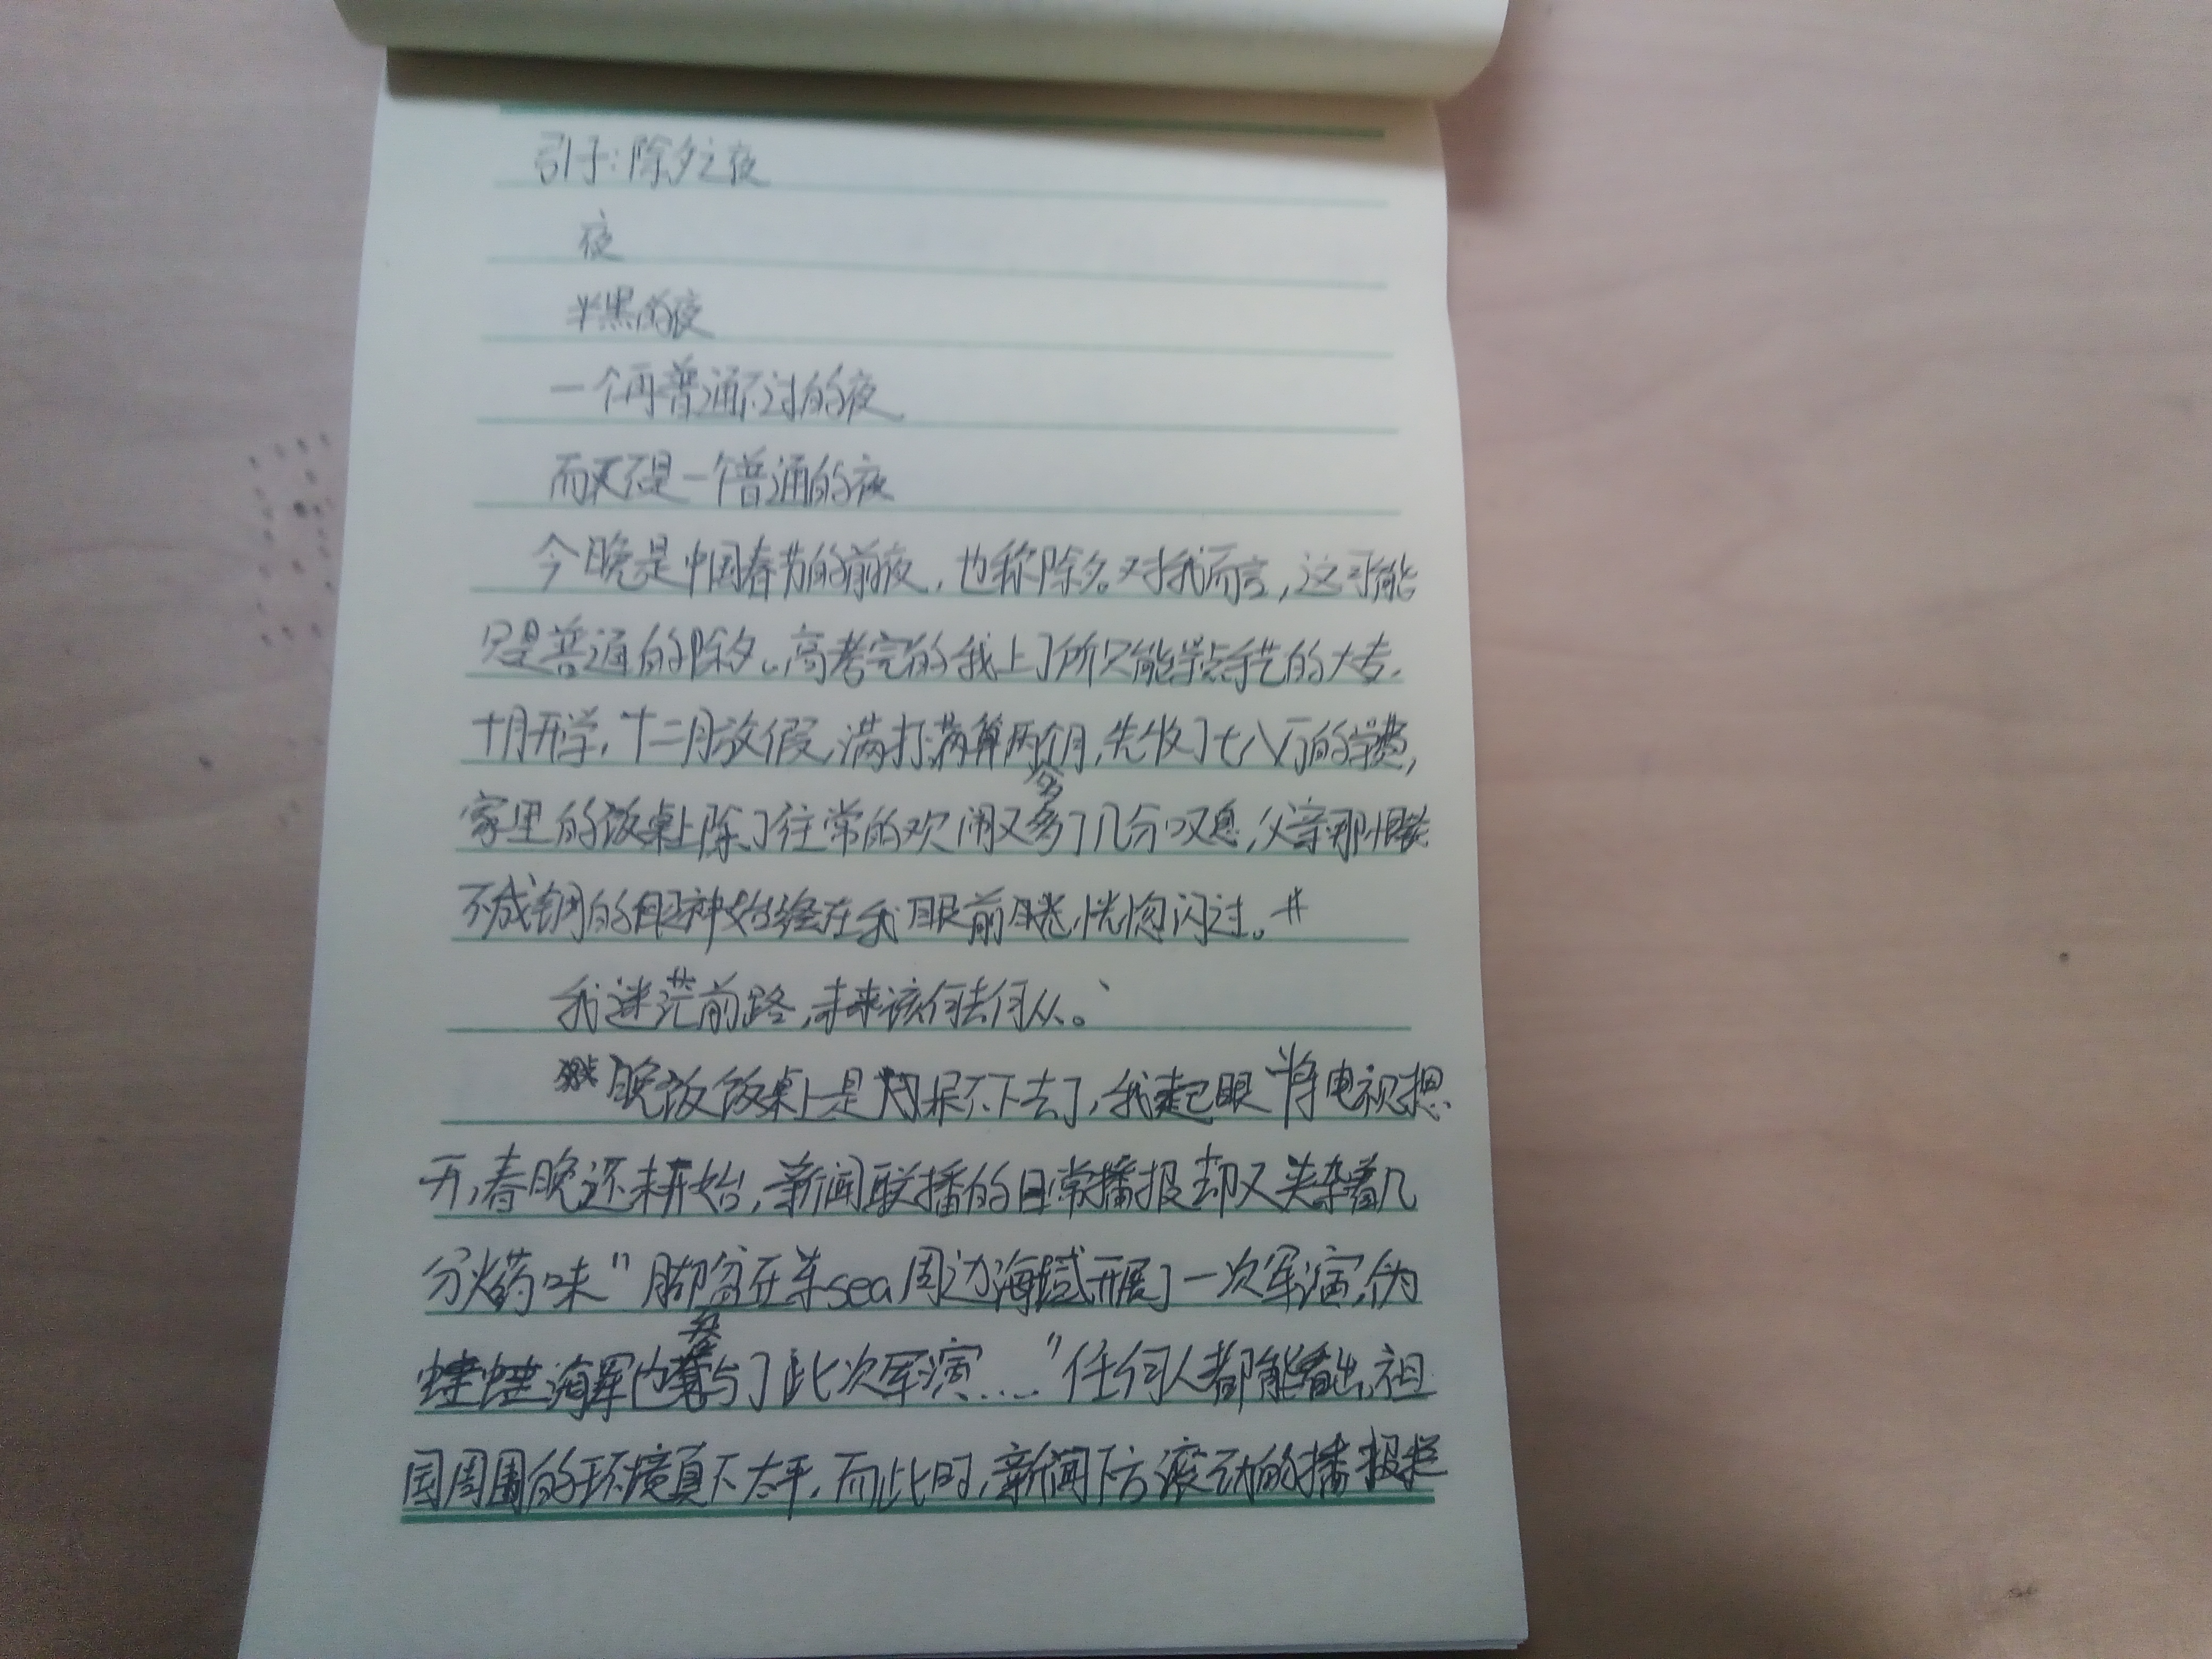 引子:除夕之夜
夜
半黑的夜
一个再普通不过的夜
而又不是一个普通的夜
今晚是中国春节的前夜,也称除夕。对我而言,这可能
只是普通的除夕。高考完的我上了所只能学点手艺的大专。
十月开学,十二月放假,满打满算两个月,先收了七八万的学费,
家里的饭桌上除了往常的欢闹又多了几分叹息,父亲那恨铁
不成钢的眼神始终在我眼前恍惚闪过。#
我迷茫前路,未来该何去何从。
晚饭饭桌上是呆不下去了,我起眼将电视摁
开,春晚还未开始,新闻联播的日常播报却又夹杂着几
分火药味"脚盆在东sea周边海域开展了一次军演,伪
蛙蛙海军也参与了此次军演……"任何人都能看出,祖
国周围的环境真不太平,而此时,新闻下方滚动的播报栏